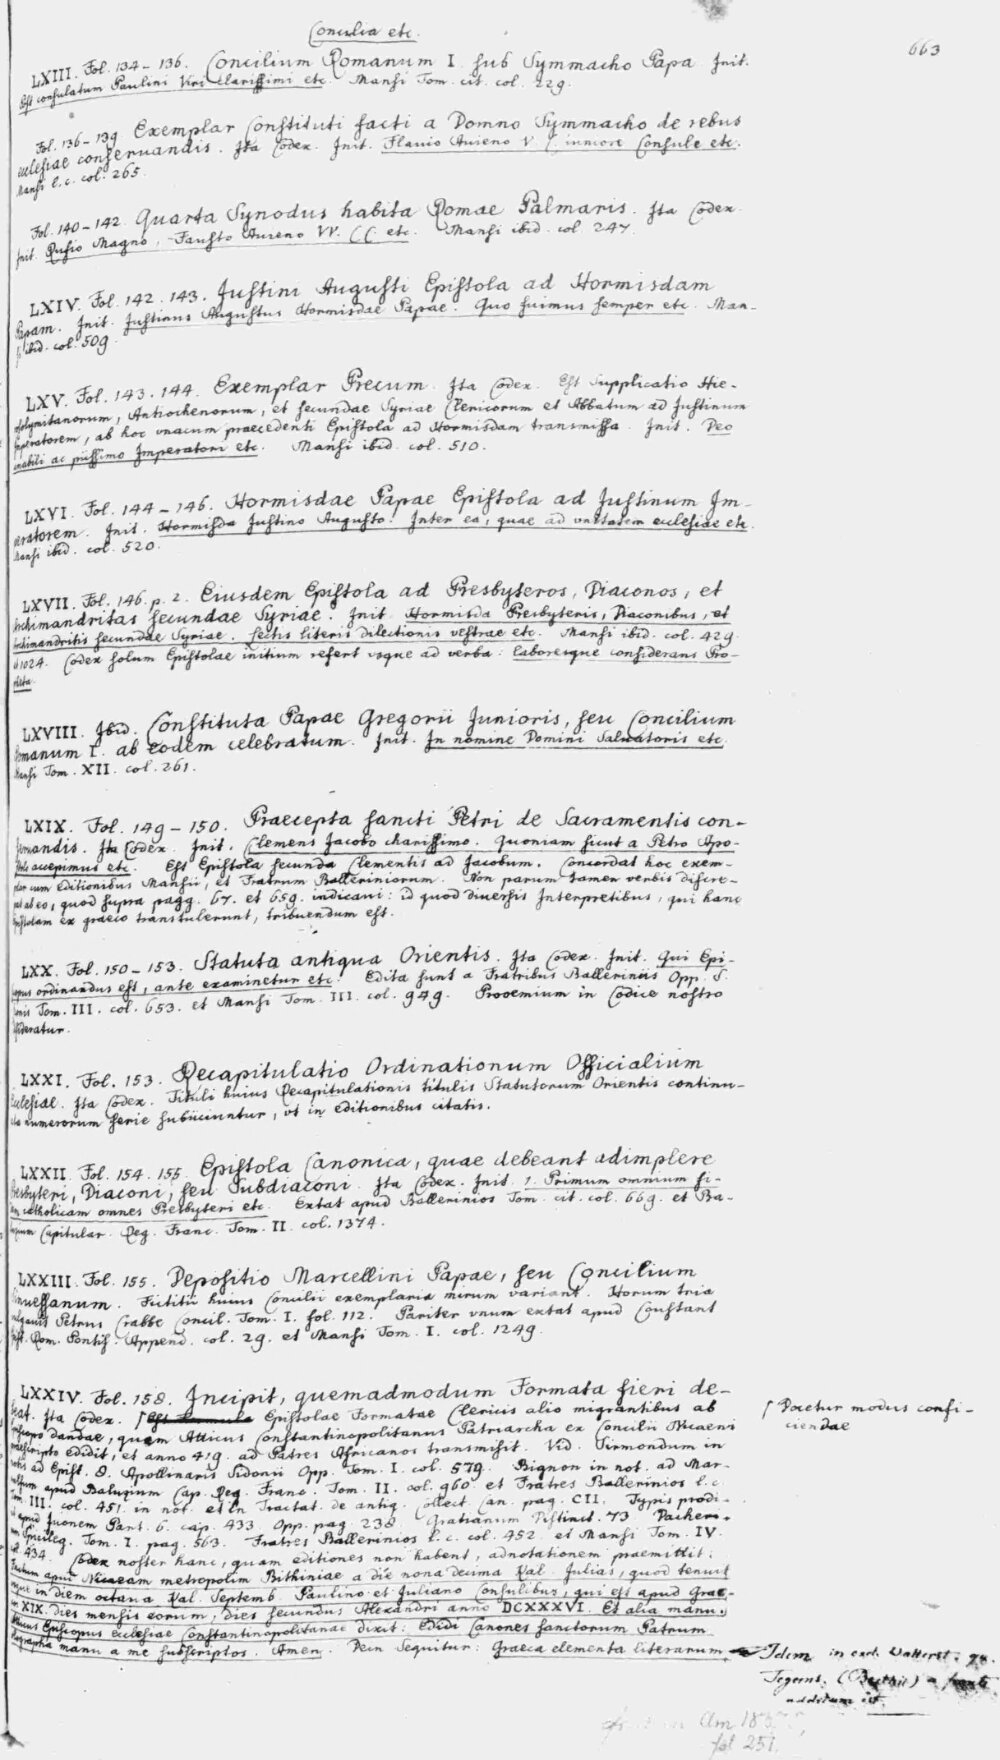 Concilia etc.
663
LXIII. Fol. 134–136. Concilium Romanum I. sub Symmacho Papa. Init.
Post consulatum Paulini Viri clarissimi etc. Mansi Tom. cit. col. 229.
Fol. 136–139. Exemplar Constituti facti a Domno Symmacho de rebus
ecclesiae conservandis. Ita Codex. Init. Flavio Avieno V. C. iuniore Consule etc.
Mansi l. c. col. 265.
Fol. 140–142. Quarta Synodus habita Romae Palmaris. Ita Codex.
Init. Rufio Magno, Fausto Avieno VV. CC. etc. Mansi ibid. col. 247.
LXIV. Fol. 142. 143. Justini Augusti Epistola ad Hormisdam
Papam. Init. Justinus Augustus Hormisdae Papae. Quo fuimus semper etc. Man-
si ibid. col. 509.
LXV. Fol. 143. 144. Exemplar Precum. Ita Codex. Est Supplicatio Hie-
rosolymitanorum, Antiochenorum, et secundae Syriae Clericorum et Abbatum ad Justinum
Imperatorem, ab hoc vnacum praecedenti Epistola ad Hormisdam transmissa. Init. Deo
amabili ac piissimo Imperatori etc. Mansi ibid. col. 510.
LXVI. Fol. 144–146. Hormisdae Papae Epistola ad Justinum Im-
peratorem. Init. Hormisda Justino Augusto. Inter ea, quae ad vnitatem ecclesiae etc.
Mansi ibid. col. 520.
LXVII. Fol. 146. p. 2. Eiusdem Epistola ad Presbyteros, Diaconos, et
Archimandritas secundae Syriae. Init. Hormisda Presbyteris, Diaconibus, et
Archimandritis secundae Syriae. Lectis literis dilectionis vestrae etc. Mansi ibid. col. 429.
et 1024. Codex solum Epistolae initium refert vsque ad verba: laboresque considerans Pro-
LXVIII. Ibid. Constituta Papae Gregorii Junioris, seu Concilium
Romanum I. ab eodem celebratum. Init. In nomine Domini Salvatoris etc.
Mansi Tom. XII. col. 261.
LXIX. Fol. 149–150. Praecepta sancti Petri de Sacramentis con-
servandis. Ita Codex. Init. Clemens Jacobo charissimo. Quoniam sicut a Petro Apo-
stolo accepimus etc. Est Epistola secunda Clementis ad Jacobum. Concordat hoc exem-
plar cum editionibus Mansii, et Fratrum Balleriniorum. Non parum tamen verbis discre-
pat ab eo, quod supra pagg. 67. et 659. indicavi: id quod diuersis Interpretibus, qui hanc
Epistolam ex graeco transtulerunt, tribuendum est.
LXX. Fol. 150–153. Statuta antiqua Orientis. Ita Codex. Init. Qui Epi-
scopus ordinandus est, ante examinetur etc. Edita sunt a Fratribus Balleriniis Opp. S.
Leonis Tom. III. col. 653. et Mansi Tom. III. col. 949. Prooemium in Codice nostro
desideratur.
LXXI. Fol. 153. Recapitulatio Ordinationum Officialium
Ecclesiae. Ita Codex. Tituli huius Recapitulationis titulis Statutorum Orientis continu-
ata numerorum serie subiiciuntur, vt in editionibus citatis.
LXXII. Fol. 154. 155. Epistola Canonica, quae debeant adimplere
Presbyteri, Diaconi, seu Subdiaconi. Ita Codex. Init. 1. Primum omnium fi-
dem catholicam omnes Presbyteri etc. Extat apud Ballerinios Tom. cit. col. 669. et Ba-
luzium Capitular. Reg. Franc. Tom. II. col. 1374.
LXXIII. Fol. 155. Depositio Marcellini Papae, seu Concilium
Sinuessanum. Fictitii huius Concilii exemplaria mirum variant. Horum tria
vulgauit Petrus Crabbe Concil. Tom. I. fol. 112. Pariter vnum extat apud Constant
Epist. Rom. Pontif. Append. col. 29. et Mansi Tom. I. col. 1249.
LXXIV. Fol. 158. Incipit, quemadmodum Formata fieri de-
beat. Ita Codex. Epistolae Formatae Clericis alio migrantibus ab
Episcopo dandae, quam Atticus Constantinopolitanus Patriarcha ex Concilii Nicaeni
praescripto edidit, et anno 419. ad Patres Africanos transmisit. Vid. Sirmondum in
notis ad Epist. 8. Apollinaris Sidonii Opp. Tom. I. col. 579. Bignon in not. ad Mar-
culfum apud Baluzium Cap. Reg. Franc. Tom. II. col. 960. et Fratres Ballerinios l. c.
Tom. III. col. 451. in not. et in Tractat. de antiq. Collect. Can. pag. CII. Typis prodi-
it apud Iuonem Part. 6. cap. 433. Opp. pag. 238. Gratianum Distinct. 73. Dacheri-
um Spicileg. Tom. I. pag. 563. Fratres Ballerinios l. c. col. 452. et Mansi Tom. IV.
col. 434. Codex noster hanc, quam editiones non habent, adnotationem praemittit:
Factum apud Nicaeam metropolim Bithiniae a die nona decima Kal. Julias, quod tenuit
vsque in diem octaua Kal. Septemb. Paulino et Juliano Consulibus, qui est apud Grae-
cos XIX. dies mensis eorum, dies secundus Alexandri anno DCXXXVI. Et alia manu:
Atticus Episcopus ecclesiae Constantinopolitanae dixit: Edidi Canones sanctorum Patrum
manu a me subscriptos. Amen. Dein Sequitur: Graeca elementa literarum
Docetur modus confi-
ciendae
Idem in cod.
additum est.
fol. 251.